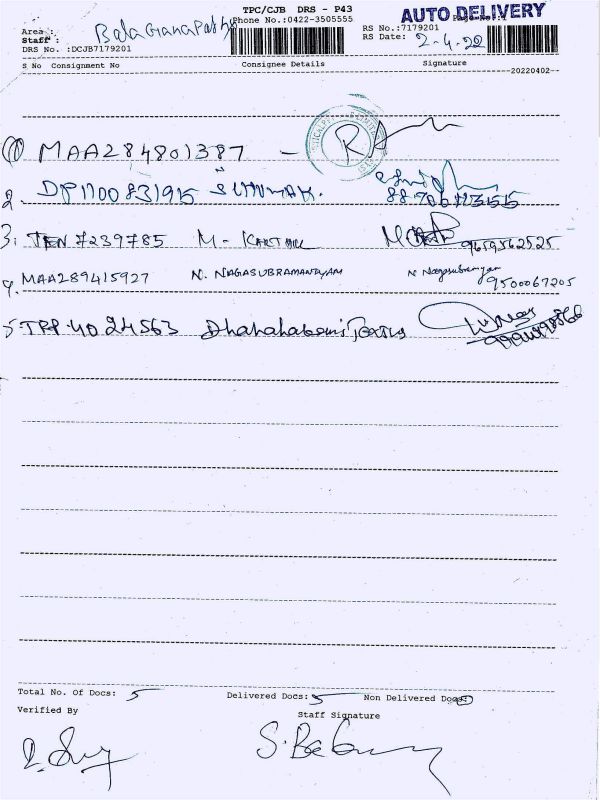 TPC/CJB DRS - P43
Phone No.:0422-3505555
AUTO DELIVERY
Area :
Staff :
RS No.:7179201
RS Date: 2-4.22
DRS No. :DCJB7179201
S No Consignment No Consignee Details Signature
20220402
1 MAA284801387 -
2. DP1700831915 88706
3. TEN 7239785 M- KARTHIK 9659562525
4. MAA289415927 N. NAGASUBRAMANYAM N Nagasubramanyam 9500067205
5 TPP 4024563
Total No. Of Docs: 5 Delivered Docs: 5 Non Delivered Docs:
Verified By
Staff Signature